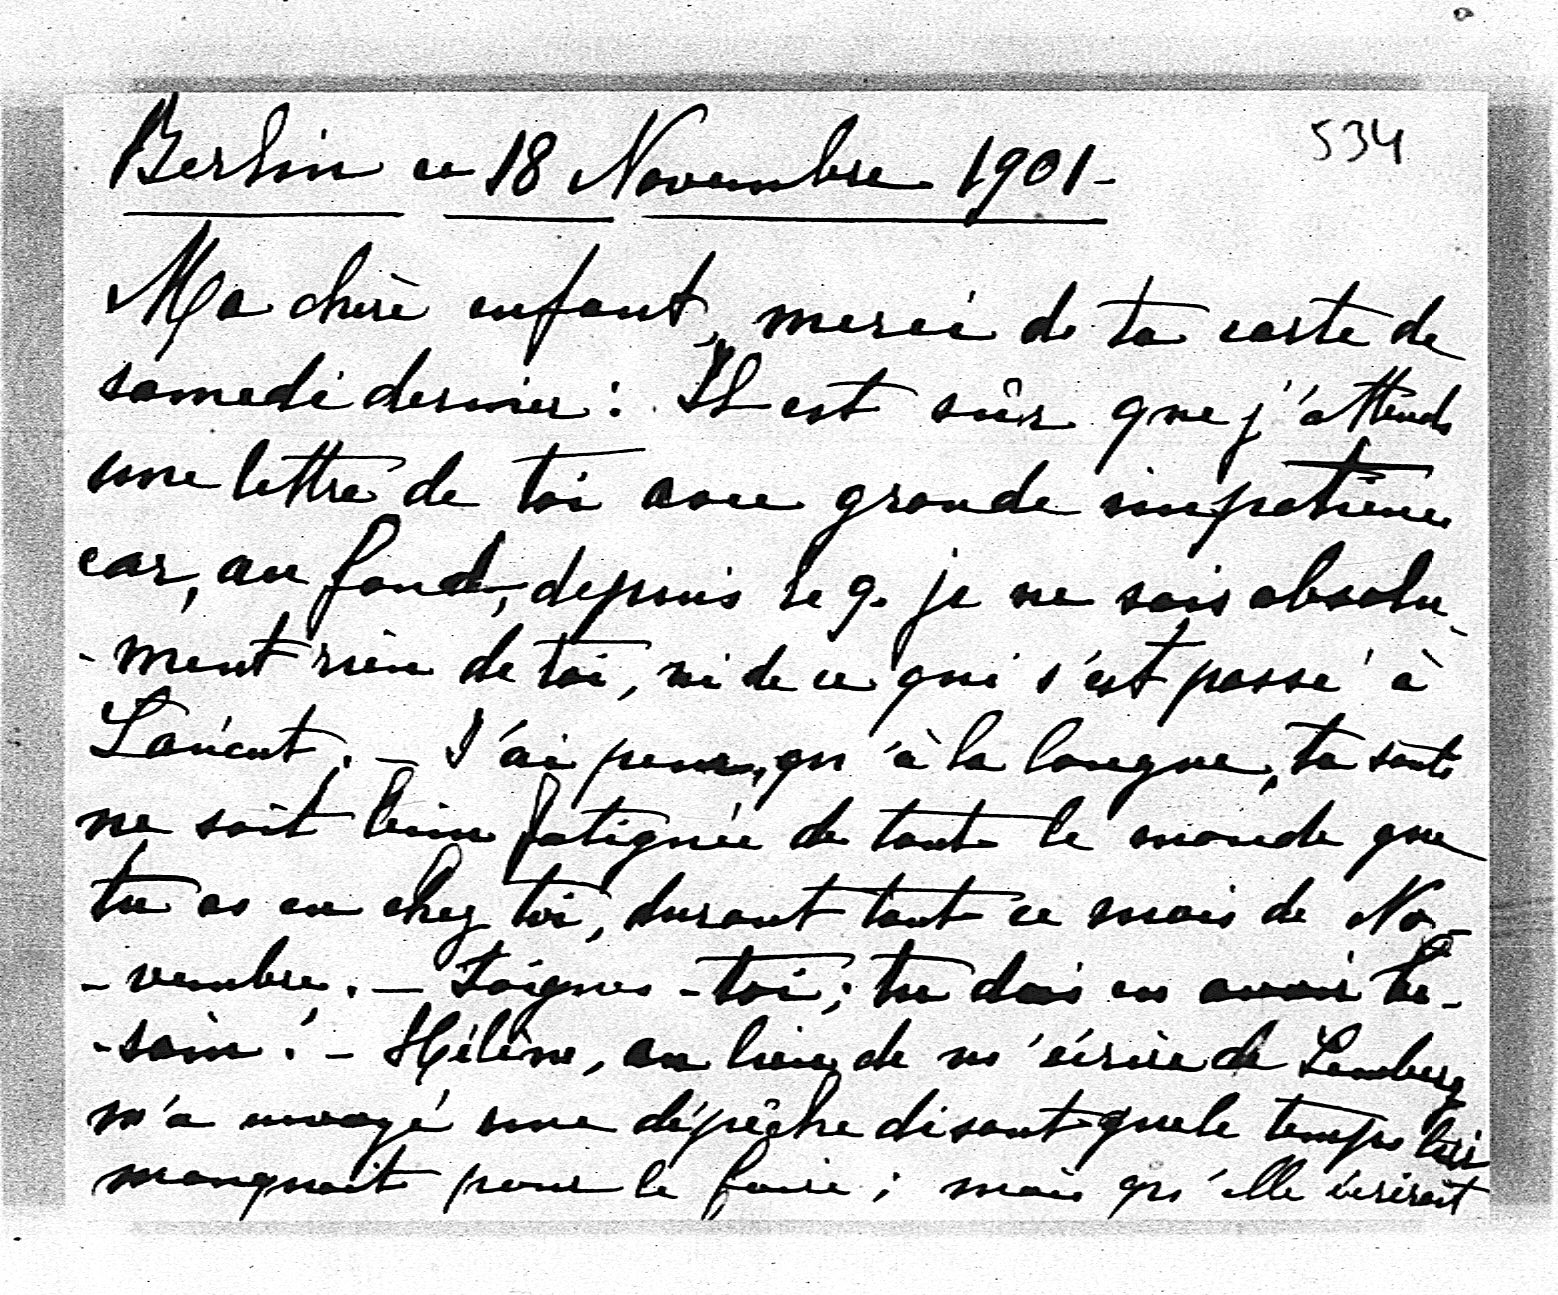 534
Berlin ce 18 Novembre 1901-
Ma chère enfant, merci de ta carte de
samedi dernier : Il est sûr que j'attends
une lettre de toi avec grande impatience
car, au fond, depuis le 9. je ne sais absolu-
-ment rien de toi, ni de ce qui s'est passé à
Lancut. - J'ai peur, qu'à la longue, ta santé
ne soit bien fatiguée de tout le monde que
tu as eu chez toi, durant tout ce mois de No-
-vembre. - Soignes-toi; tu dois en avoir be-
-soin ! - Hélène, au lieu de m'écrire de Lemberg
m'a envoyé une dépêche disant que le temps lui
manquait pour le faire ; mais qu'elle écrirait